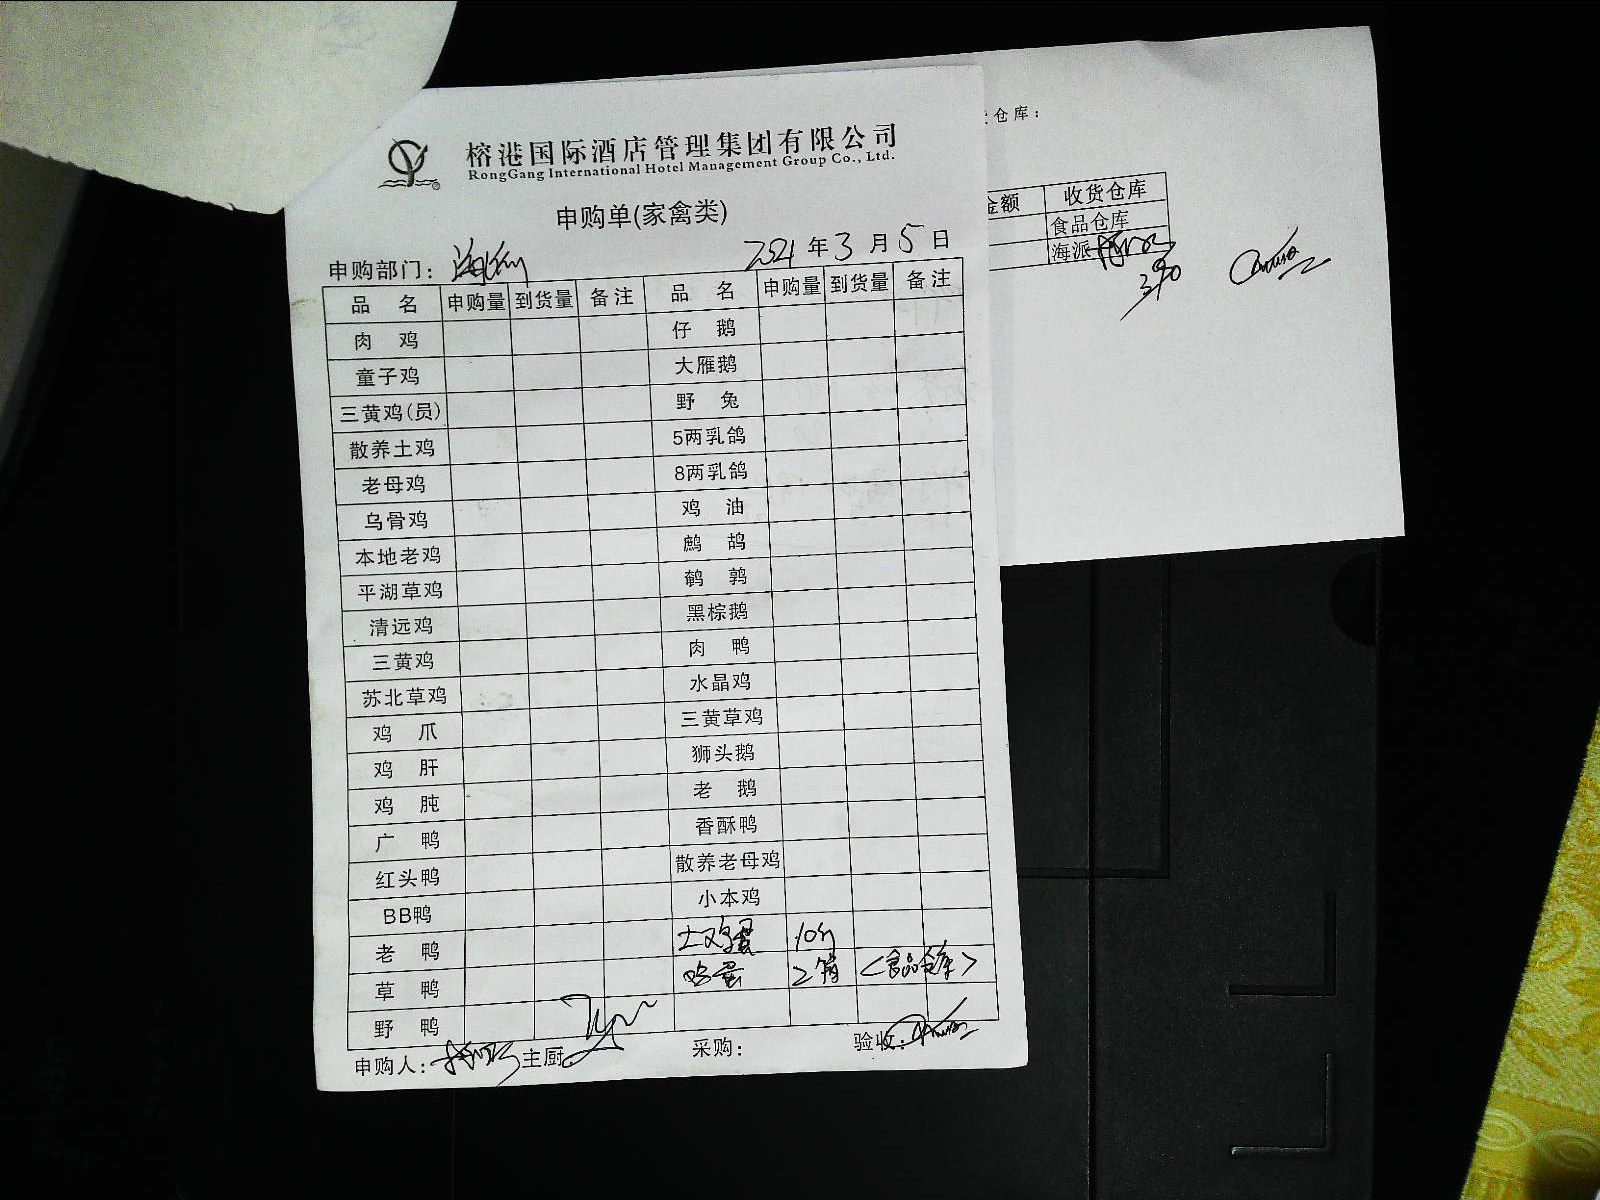 榕港国际酒店管理集团有限公司
RongGang International Hotel Management Group Co., Ltd.
申购单(家禽类)
申购部门：海派 2021年3月5日
品 名 申购量 到货量 备注 品 名 申购量 到货量 备注
肉 鸡 仔 鹅
童子鸡 大雁鹅
三黄鸡(员) 野 兔
散养土鸡 5两乳鸽
老母鸡 8两乳鸽
乌骨鸡 鸡 油
本地老鸡 鹧 鸪
平湖草鸡 鹌 鹑
清远鸡 黑棕鹅
三黄鸡 肉 鸭
苏北草鸡 水晶鸡
鸡 爪 三黄草鸡
鸡 肝 狮头鹅
鸡 肫 老 鹅
广 鸭 香酥鸭
红头鸭 散养老母鸡
BB鸭 小本鸡
老 鸭 土鸡蛋 10斤
草 鸭 鸡蛋 2箱 <食品仓库>
野 鸭
申购人： 主厨： 采购： 验收：
仓库：
金额 收货仓库
食品仓库
海派
390